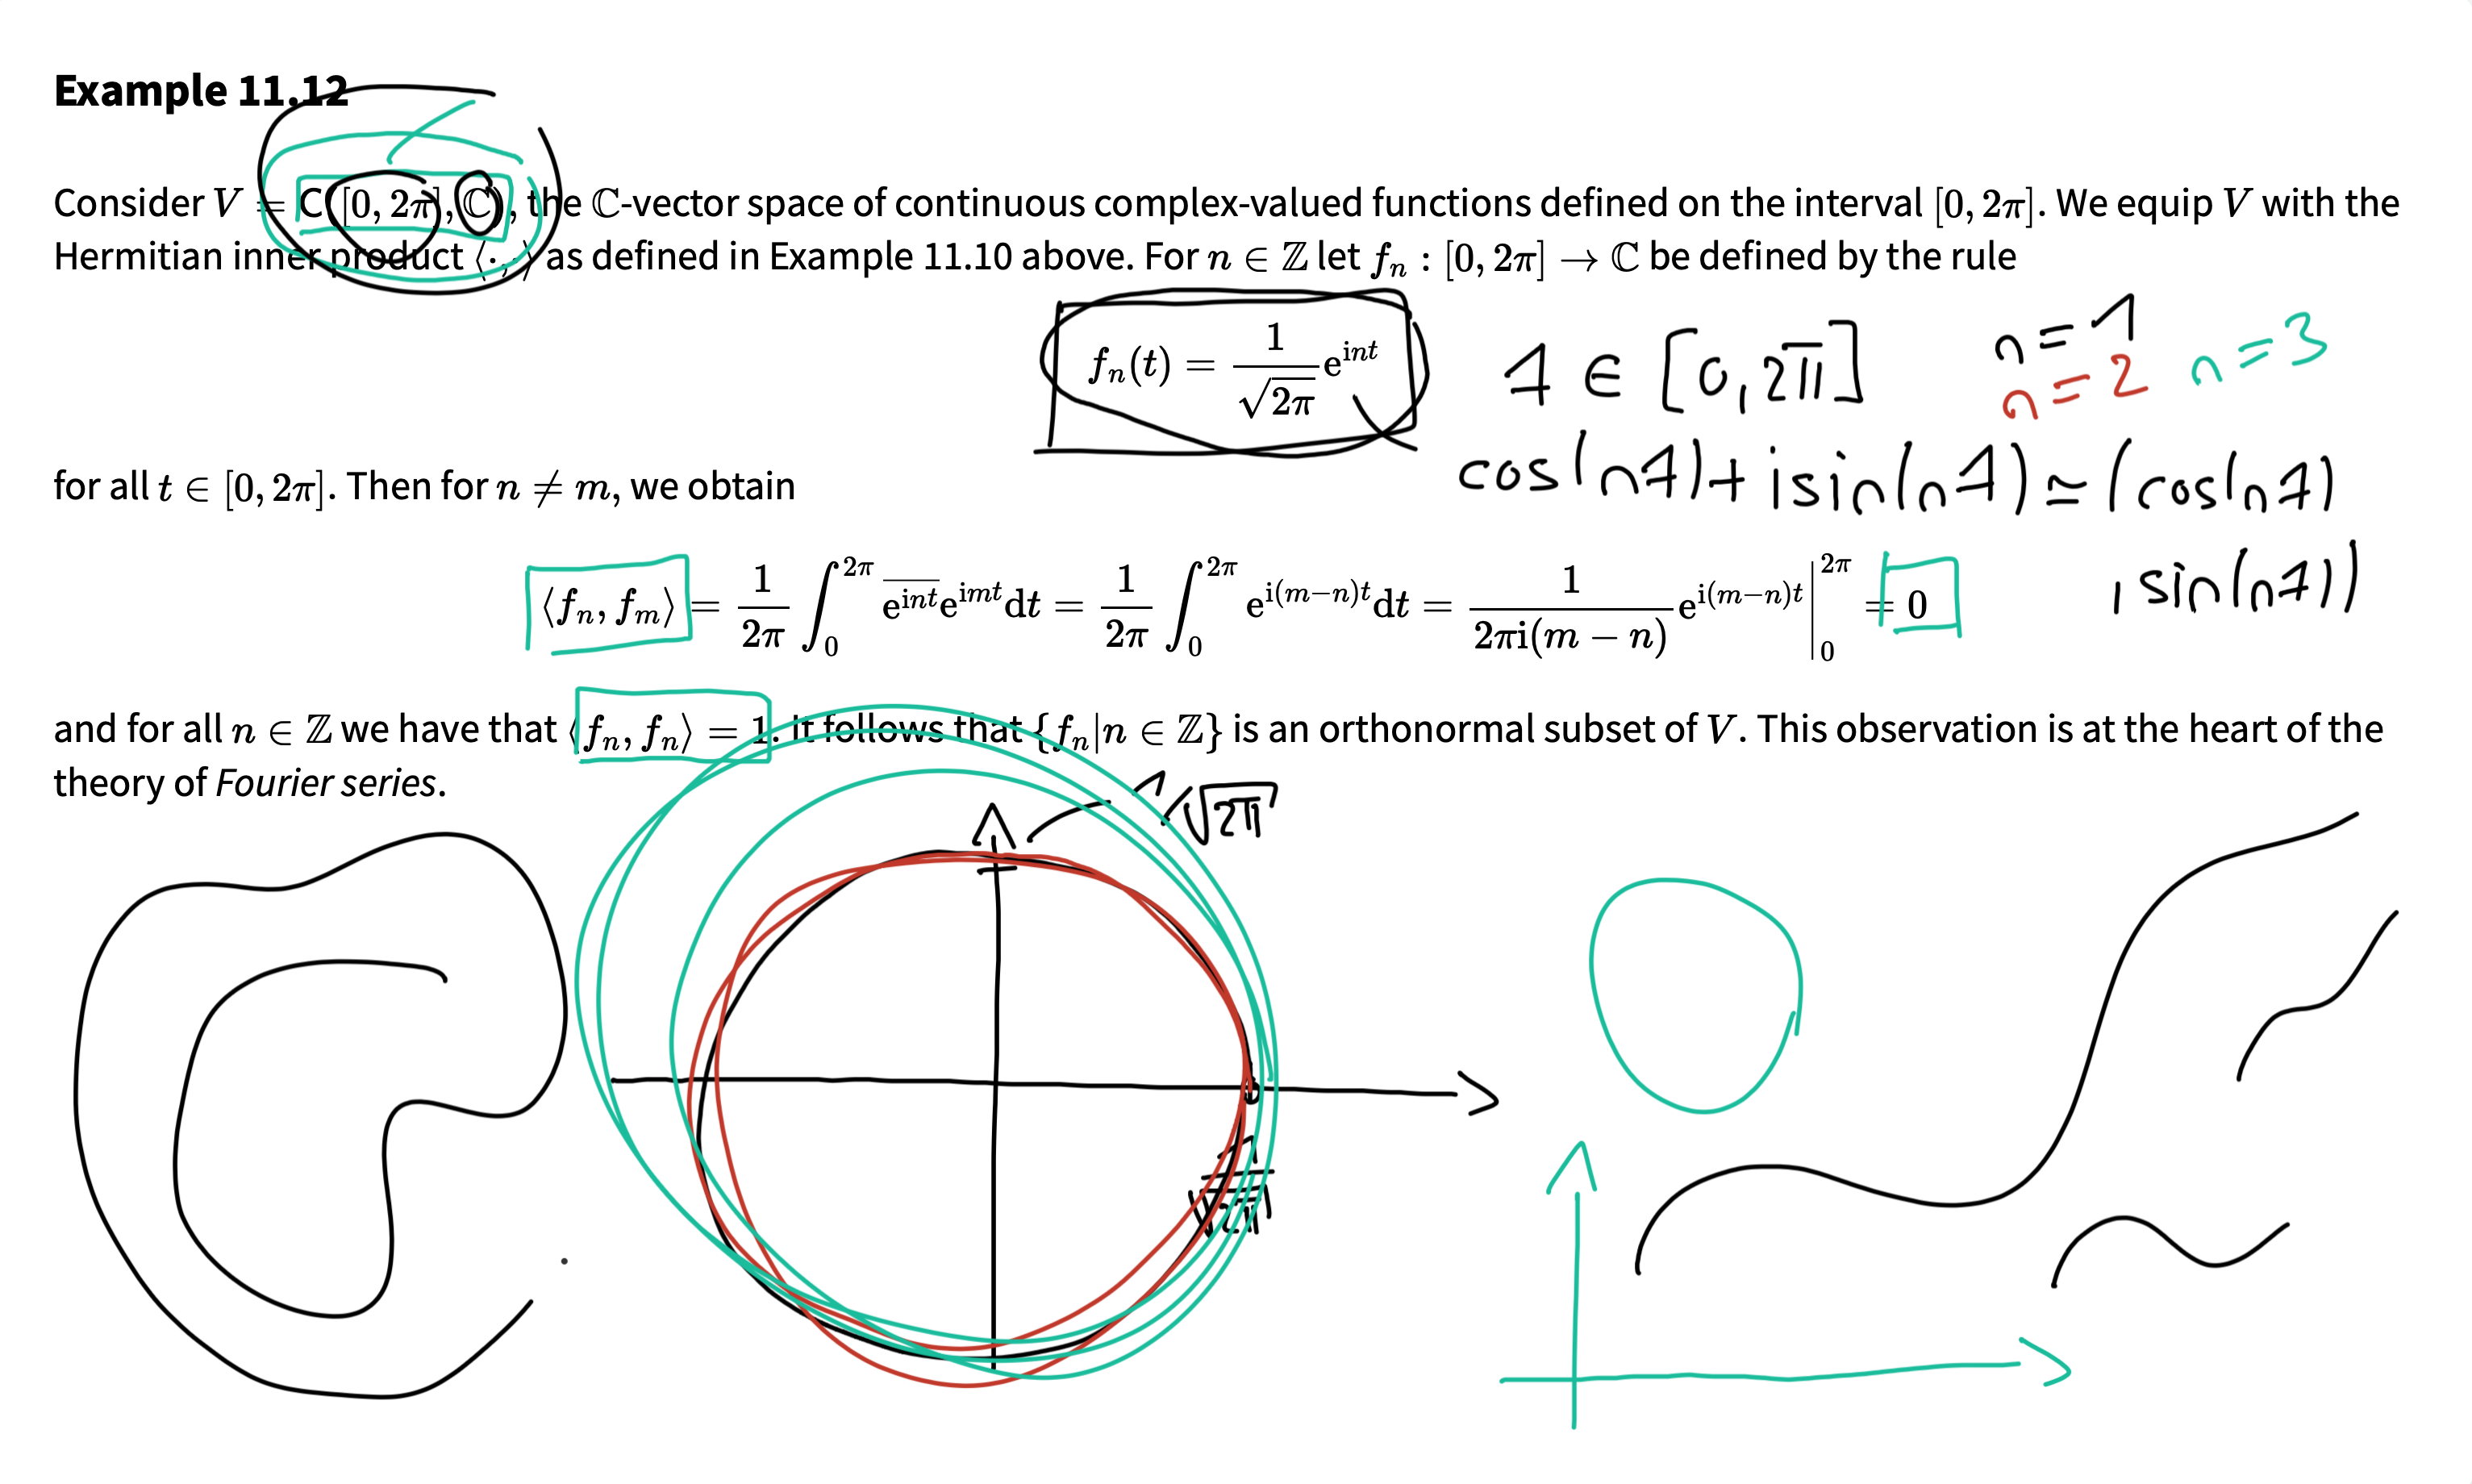 Example 11.12
Consider V = C([0, 2π], ℂ), the ℂ-vector space of continuous complex-valued functions defined on the interval [0, 2π]. We equip V with the
Hermitian inner product ⟨·,·⟩ as defined in Example 11.10 above. For n ∈ ℤ let fₙ : [0, 2π] → ℂ be defined by the rule
fₙ(t) = 1/√(2π) e^{int}
1 ∈ [0, 2π]
n = 1
n = 2
n = 3
for all t ∈ [0, 2π]. Then for n ≠ m, we obtain
cos(n1) + i sin(n1) ≃ (cos(n1)
, sin(n1))
⟨fₙ, fₘ⟩ = 1/(2π) ∫₀^{2π} \overline{e^{int}} e^{imt} dt = 1/(2π) ∫₀^{2π} e^{i(m−n)t} dt = 1/(2πi(m − n)) e^{i(m−n)t} |₀^{2π} = 0
and for all n ∈ ℤ we have that ⟨fₙ, fₙ⟩ = 1. It follows that {fₙ|n ∈ ℤ} is an orthonormal subset of V. This observation is at the heart of the
theory of Fourier series.
1/√2π